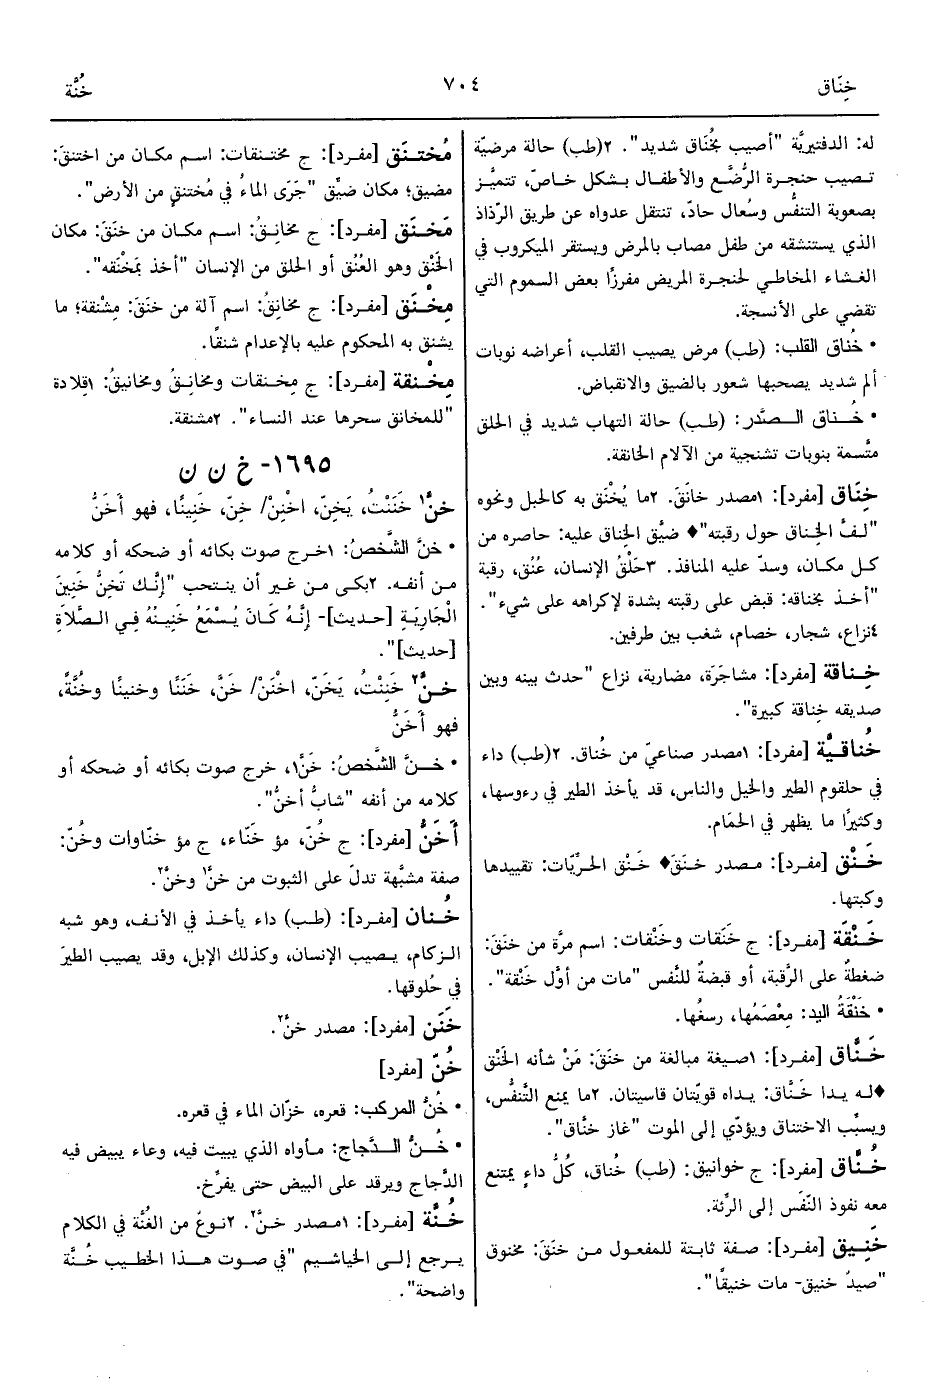 خِنَاق
٧٠٤
خُنَّة
له: الدفتيريَّة "أصيب بخُناق شديد". ٢(طب) حالة مرضيّة
تصيب حنجرة الرُّضَّع والأطفال بشكل خاصّ، تتميَّز
بصعوبة التنفُّس وسُعال حادّ، تنتقل عدواه عن طريق الرّذاذ
الذي يستنشقه من طفل مصاب بالمرض ويستقر الميكروب في
الغشاء المخاطي لحنجرة المريض مفرزًا بعض السموم التي
تقضي على الأنسجة.
• خُناق القلب: (طب) مرض يصيب القلب، أعراضه نوبات
ألم شديد يصحبها شعور بالضيق والانقباض.
• خُناق الصَّدر: (طب) حالة التهاب شديد في الحلق
متَّسمة بنوبات تشنجية من الآلام الخانقة.
خِنَاق [مفرد]: ١مصدر خانَقَ. ٢ما يُخْنَق به كالحبل ونحوه
"لفَّ الخِناق حول رقبته"♦ ضيَّق الخِناق عليه: حاصره من
كل مكان، وسدّ عليه المنافذ. ٣حَلْقُ الإنسان، عُنُق، رقبة
"أخذ بخناقه: قبض على رقبته بشدة لإكراهه على شيء".
٤نزاع، شجار، خصام، شغب بين طرفين.
خِناقة [مفرد]: مشاجَرَة، مضاربة، نزاع "حدث بينه وبين
صديقه خِناقة كبيرة".
خُناقيَّة [مفرد]: ١مصدر صناعيّ من خُناق. ٢(طب) داء
في حلقوم الطير والخيل والناس، قد يأخذ الطير في رءوسها،
وكثيرًا ما يظهر في الحَمَام.
خَنْق [مفرد]: مصدر خنَقَ♦ خَنْق الحرِّيّات: تقييدها
وكبتها.
خَنْقَة [مفرد]: ج خَنَقات وخَنْقات: اسم مرَّة من خنَقَ:
ضغطةٌ على الرَّقبة، أو قبضةٌ للنَّفس "مات من أوَّل خَنْقة".
• خَنْقَةُ اليد: مِعْصَمُها، رسغُها.
خَنَّاق [مفرد]: ١صيغة مبالغة من خنَقَ: مَنْ شأنه الخَنْق
♦له يدا خَنَّاق: يداه قويّتان قاسيتان. ٢ما يمنع التَّنفُّس،
ويسبِّب الاختناق ويؤدّي إلى الموت "غاز خنَّاق".
خُنَّاق [مفرد]: ج خوانيق: (طب) خُناق، كُلُّ داءٍ يمتنع
معه نفوذ النّفَس إلى الرِّئة.
خَنِيق [مفرد]: صفة ثابتة للمفعول من خنَقَ: مخنوق
"صيدٌ خنيق- مات خنيقًا".
مُختنَق [مفرد]: ج مختنقات: اسم مكان من اختنقَ:
مضيق؛ مكان ضيِّق "جَرَى الماءُ في مُختنقٍ من الأرض".
مَخْنَق [مفرد]: ج مخانِقُ: اسم مكان من خنَقَ: مكان
الخَنْق وهو العُنُق أو الحلق من الإنسان "أخذ بمَخْنَقه".
مِخْنَق [مفرد]: ج مخانِقُ: اسم آلة من خنَقَ: مِشْنقة؛ ما
يشنق به المحكوم عليه بالإعدام شنقًا.
مِخْنقة [مفرد]: ج مِخنقات ومخانِقُ ومخانيقُ: ١قِلادة
"للمخانق سحرها عند النساء". ٢مشنقة.
١٦٩٥- خ ن ن
خنَّ١ خَنَنْتُ، يَخِنّ، اخْنِنْ/ خِنّ، خَنِينًا، فهو أَخَنُّ
• خنَّ الشَّخصُ: ١خرج صوت بكائه أو ضحكه أو كلامه
من أنفه. ٢بكى من غير أن ينتحب "إنَّك تَخِنُّ خَنِينَ
الْجَارِيَةِ [حديث]- إِنَّهُ كَانَ يُسْمَعُ خَنِينُهُ فِي الصَّلاَةِ
[حديث]".
خنَّ٢ خَنِنْتُ، يَخَنّ، اخْنَنْ/ خَنَّ، خَنَنًا وخنينًا وخُنَّةً،
فهو أَخَنُّ
• خنَّ الشَّخصُ: خَنَّ١، خرج صوت بكائه أو ضحكه أو
كلامه من أنفه "شابٌّ أخنُّ".
أَخَنُّ [مفرد]: ج خُنّ، مؤ خَنَّاء، ج مؤ خنّاوات وخُنّ:
صفة مشبَّهة تدلّ على الثبوت من خنَّ١ وخنَّ٢.
خُنان [مفرد]: (طب) داء يأخذ في الأنف، وهو شبه
الزكام، يصيب الإنسان، وكذلك الإبل، وقد يصيب الطيرَ
في حُلوقها.
خَنَن [مفرد]: مصدر خنَّ٢.
خُنّ [مفرد]
• خُنُّ المركب: قعره، خزّان الماء في قعره.
• خُنُّ الدَّجاج: مأواه الذي يبيت فيه، وعاء يبيض فيه
الدَّجاج ويرقد على البيض حتى يفرِّخ.
خُنَّة [مفرد]: ١مصدر خنَّ٢. ٢نوعٌ من الغُنَّة في الكلام
يرجع إلى الخياشيم "في صوت هذا الخطيب خُنَّة
واضحة".